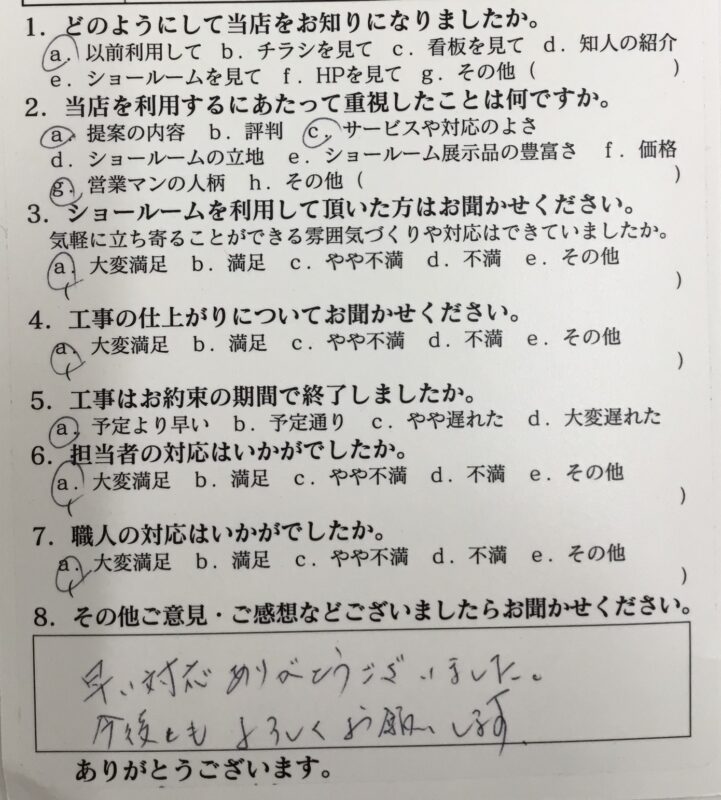 1．どのようにして当店をお知りになりましたか。
a．以前利用して b．チラシを見て c．看板を見て d．知人の紹介
e．ショールームを見て f．HPを見て g．その他（ ）
2．当店を利用するにあたって重視したことは何ですか。
a．提案の内容 b．評判 c．サービスや対応のよさ
d．ショールームの立地 e．ショールーム展示品の豊富さ f．価格
g．営業マンの人柄 h．その他（ ）
3．ショールームを利用して頂いた方はお聞かせください。
気軽に立ち寄ることができる雰囲気づくりや対応はできていましたか。
a．大変満足 b．満足 c．やや不満 d．不満 e．その他
）
4．工事の仕上がりについてお聞かせください。
a．大変満足 b．満足 c．やや不満 d．不満 e．その他
）
5．工事はお約束の期間で終了しましたか。
a．予定より早い b．予定通り c．やや遅れた d．大変遅れた
6．担当者の対応はいかがでしたか。
a．大変満足 b．満足 c．やや不満 d．不満 e．その他
）
7．職人の対応はいかがでしたか。
a．大変満足 b．満足 c．やや不満 d．不満 e．その他
）
8．その他ご意見・ご感想などございましたらお聞かせください。
早い対応ありがとうございました。
今後ともよろしくお願いします。
ありがとうございます。